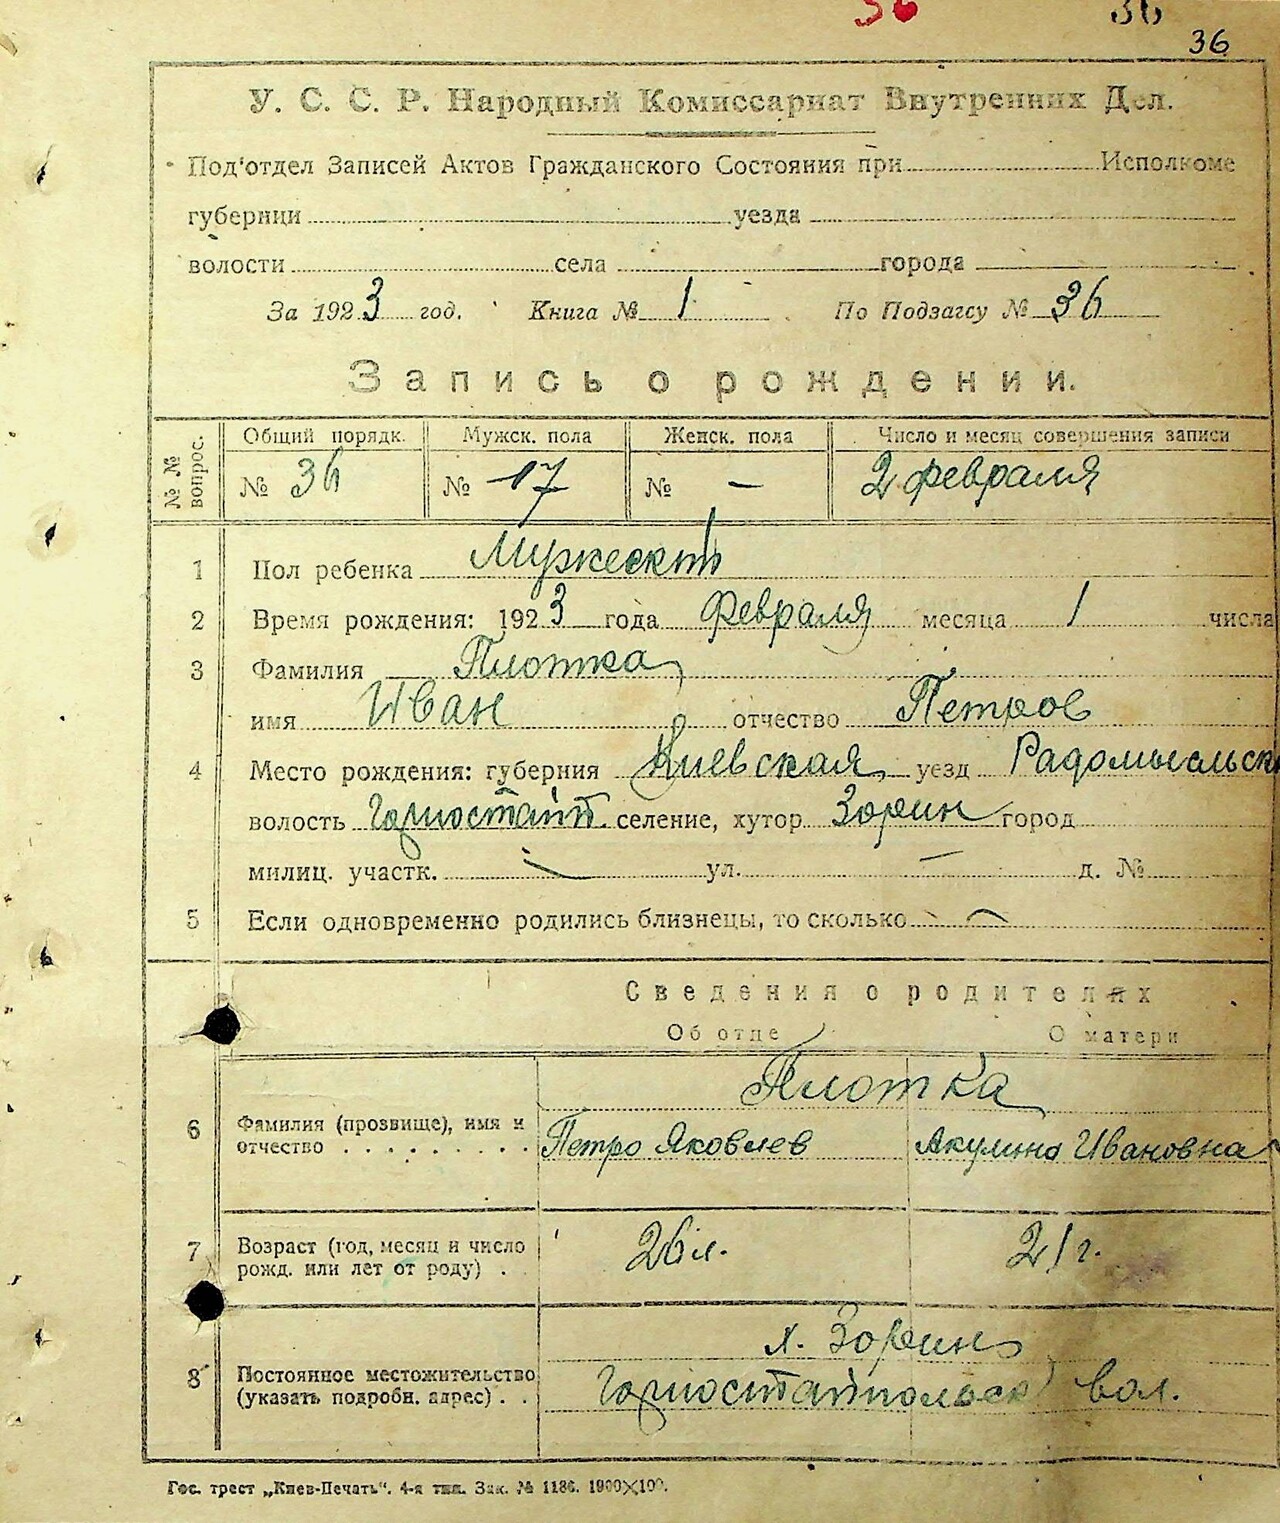 36 36
36
У. С. С. Р. Народный Комиссариат Внутренних Дел.
Под'отдел Записей Актов Гражданского Состояния при Исполкоме
губернии уезда
волости села города
За 1923 год. Книга № 1 По Подзагсу № 36
Запись о рождении.
№ № вопрос.
Общий порядк. Мужск. пола Женск. пола Число и месяц совершения записи
№ 36 № 17 № — 2 февраля
1 Пол ребенка
2 Время рождения: 1923 года Февраля месяца 1 числа
3 Фамилия Плотка
имя Иван отчество Петров
4 Место рождения: губерния Киевская уезд Радомысльск
волость Горностайп. селение, хутор Зорин город
милиц. участк. — ул. — д. №
5 Если одновременно родились близнецы, то сколько —
Сведения о родителях
Об отце О матери
Плотка
6 Фамилия (прозвище), имя и отчество . . . . . . . . . Петро Яковлев Акулина Ивановна
7 Возраст (год, месяц и число рожд. или лет от роду) . 26 л. 21 г.
х. Зорин
8 Постоянное местожительство (указать подробн. адрес) . . Горностайпольск вол.
Гос. трест „Киев-Печать". 4-я тип. Зак. № 1186. 1900×100.